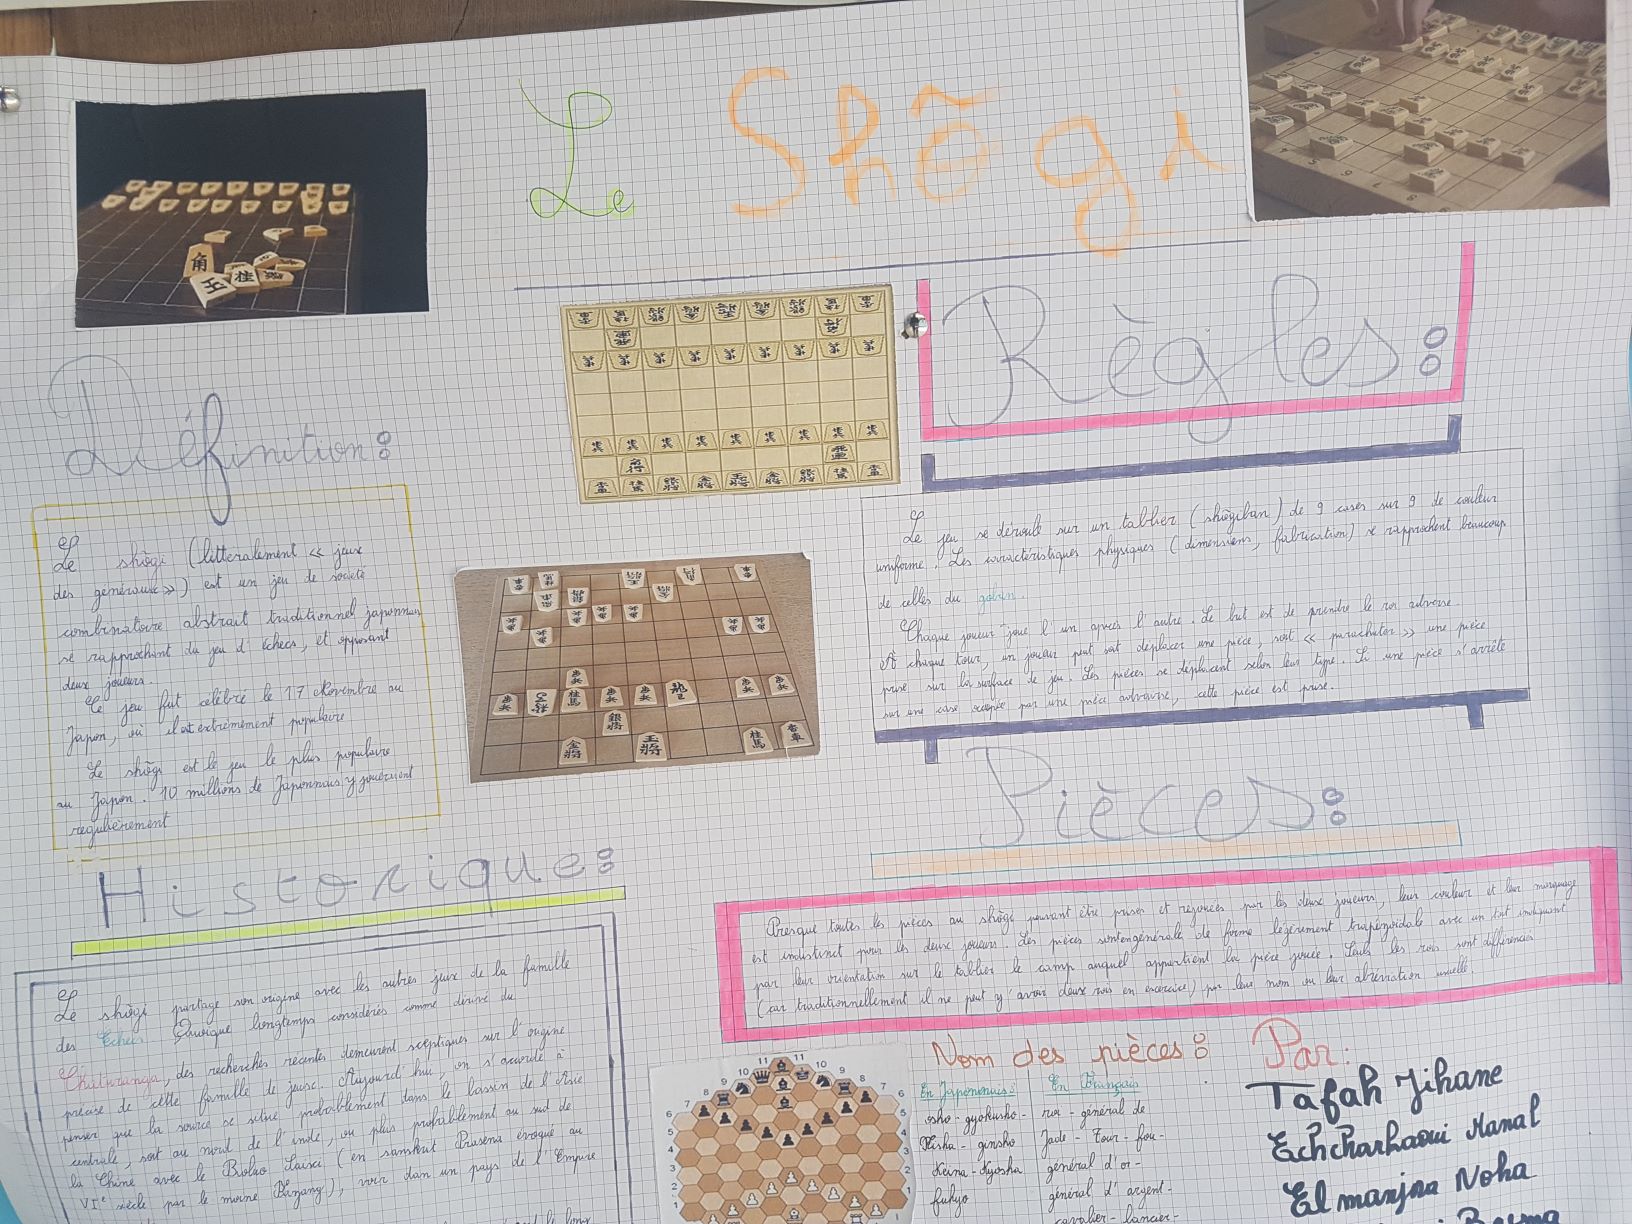 Le Shōgi
Définition:
Le shōgi (littéralement « jeux
des généraux») est un jeu de société
combinatoire abstrait traditionnel japonnais
se rapprochant du jeu d'échecs, et opposant
deux joueurs.
Ce jeu fut célébré le 17 Novembre au
Japon, où il est extrêmement populaire
Le shōgi est le jeu le plus populaire
au Japon. 10 millions de Japonnais y joueraient
regulièrement
Historique:
Le shōgi partage son origine avec les autres jeux de la famille
des Echecs Quoique longtemps considérés comme dérivé du
Chaturanga, des recherches récentes demeurent sceptiques sur l'origine
précise de cette famille de jeux. Aujourd'hui, on s'accorde à
penser que la source se situe probablement dans le bassin de l'Asie
centrale, soit au nord de l'inde, ou plus probablement au sud de
la Chine avec le (en sanskrit Prasena évoqué au
VIe siècle par le moine), voir dam un pays de l'Empire
Règles:
Le jeu se déroule sur un tablier (shōgiban) de 9 cases sur 9 de couleur
uniforme. Les caractéristiques physiques (dimensions, fabrication) se rapprochent beaucoup
de celles du goban.
Chaque joueur joue l'un après l'autre. Le but est de prendre le roi adverse.
A chaque tour, un joueur peut soit déplacer une pièce, soit « parachuter » une pièce
prise sur la surface de jeu. Les pièces se déplacent selon leur type. Si une pièce s'arrête
sur une case occupée par une pièce adverse, cette pièce est prise.
Pièces:
Presque toutes les pièces au shōgi pouvant être prises et rejouées par les deux joueurs, leur couleur et leur marquage
est indistinct pour les deux joueurs. Les pièces sont en générale de forme légèrement trapézoïdale avec un toit indiquant
par leur orientation sur le tablier le camp auquel appartient la pièce jouée. Seuls les rois sont différenciés
(car traditionnellement il ne peut y avoir deux rois en exercice) par leur nom ou leur abréviation usuelle.
Nom des pièces:
En Japonnais: En Français
osho - gyokusho - roi - général de
Hisha - ginsho Jade - Tour - fou -
Keima - Kyosha général d'or -
fuhyo général d'argent -
cavalier - lancier -
Par:
Tafah Jihane
Echcharhaoui Manal
El manjra Noha